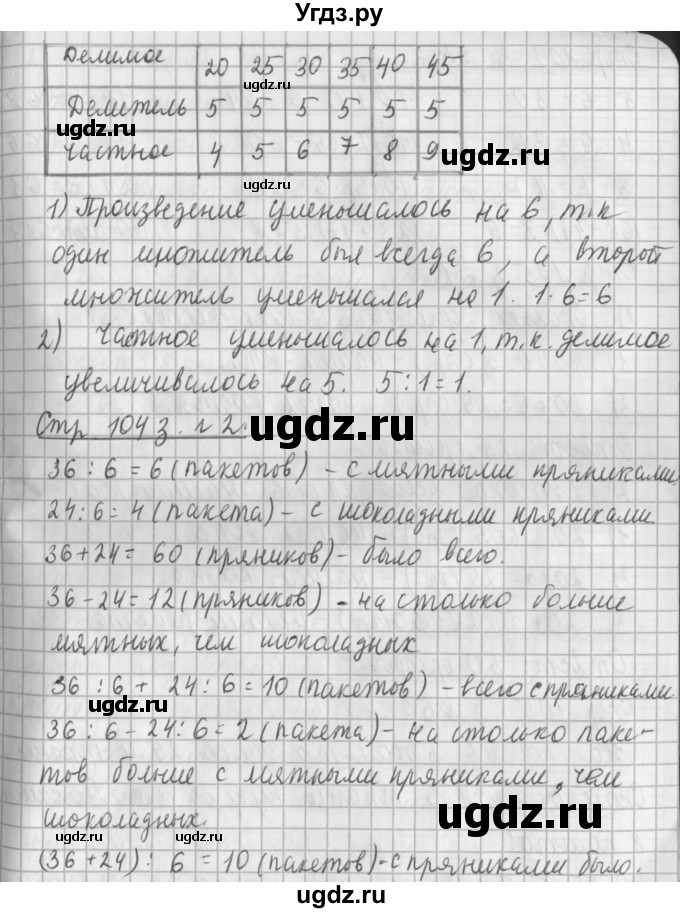 Угдз.ру
Делимое 20 25 30 35 40 45
Делитель 5 5 5 5 5 5
Частное 4 5 6 7 8 9
1) Произведение уменьшалось на 6, т.к
один множитель был всегда 6, а второй
множитель уменьшался на 1. 1·6=6
2) Частное уменьшалось на 1, т.к. делимое
увеличивалось на 5. 5:1=1.
Стр 104 з. №2.
36 : 6 = 6 (пакетов) - с мятными пряниками.
24:6= 4 (пакета) - с шоколадными пряниками
36+24= 60 (пряников) - было всего.
36-24=12 (пряников) - на столько больше
мятных, чем шоколадных
36 : 6 + 24 : 6 = 10 (пакетов) - всего с пряниками
36 : 6 - 24 : 6 = 2 (пакета) - на столько паке-
тов больше с мятными пряниками, чем
шоколадных.
(36 +24) : 6 = 10 (пакетов) - с пряниками было.
ugdz.ru
ugdz.ru
ugdz.ru
ugdz.ru
ugdz.ru
ugdz.ru
ugdz.ru
ugdz.ru
ugdz.ru
ugdz.ru
ugdz.ru
ugdz.ru
ugdz.ru
ugdz.ru